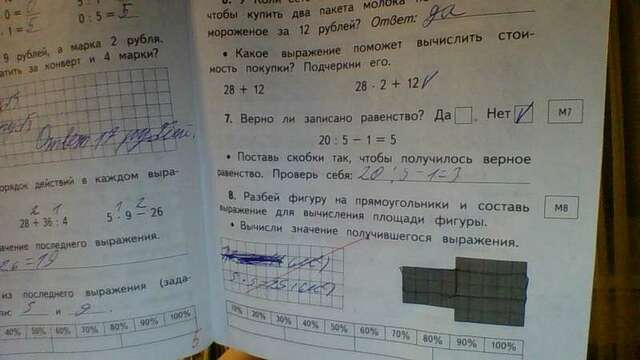 5
0 : 5 = 5
· 1 = 5
9 рублей, а марка 2 рубля.
атить за конверт и 4 марки?
Ответ 17 рублей.
порядок действий в каждом выра-
2 1
28 + 36 : 4
1 2
5 · 9 − 26
начение последнего выражения.
26 = 19
из последнего выражения (зада-
5 и 9
40% 50% 60% 70% 80% 90% 100%
5
чтобы купить два пакета молока
мороженое за 12 рублей? Ответ: да
• Какое выражение поможет вычислить стои-
мость покупки? Подчеркни его.
28 + 12
28 · 2 + 12 V
7. Верно ли записано равенство? Да . Нет V
М7
20 : 5 − 1 = 5
• Поставь скобки так, чтобы получилось верное
равенство. Проверь себя: 20 : 5 − 1 = 3
8. Разбей фигуру на прямоугольники и составь
выражение для вычисления площади фигуры.
М8
• Вычисли значение получившегося выражения.
10% 20% 30% 40% 50% 60% 70% 80% 90% 100%